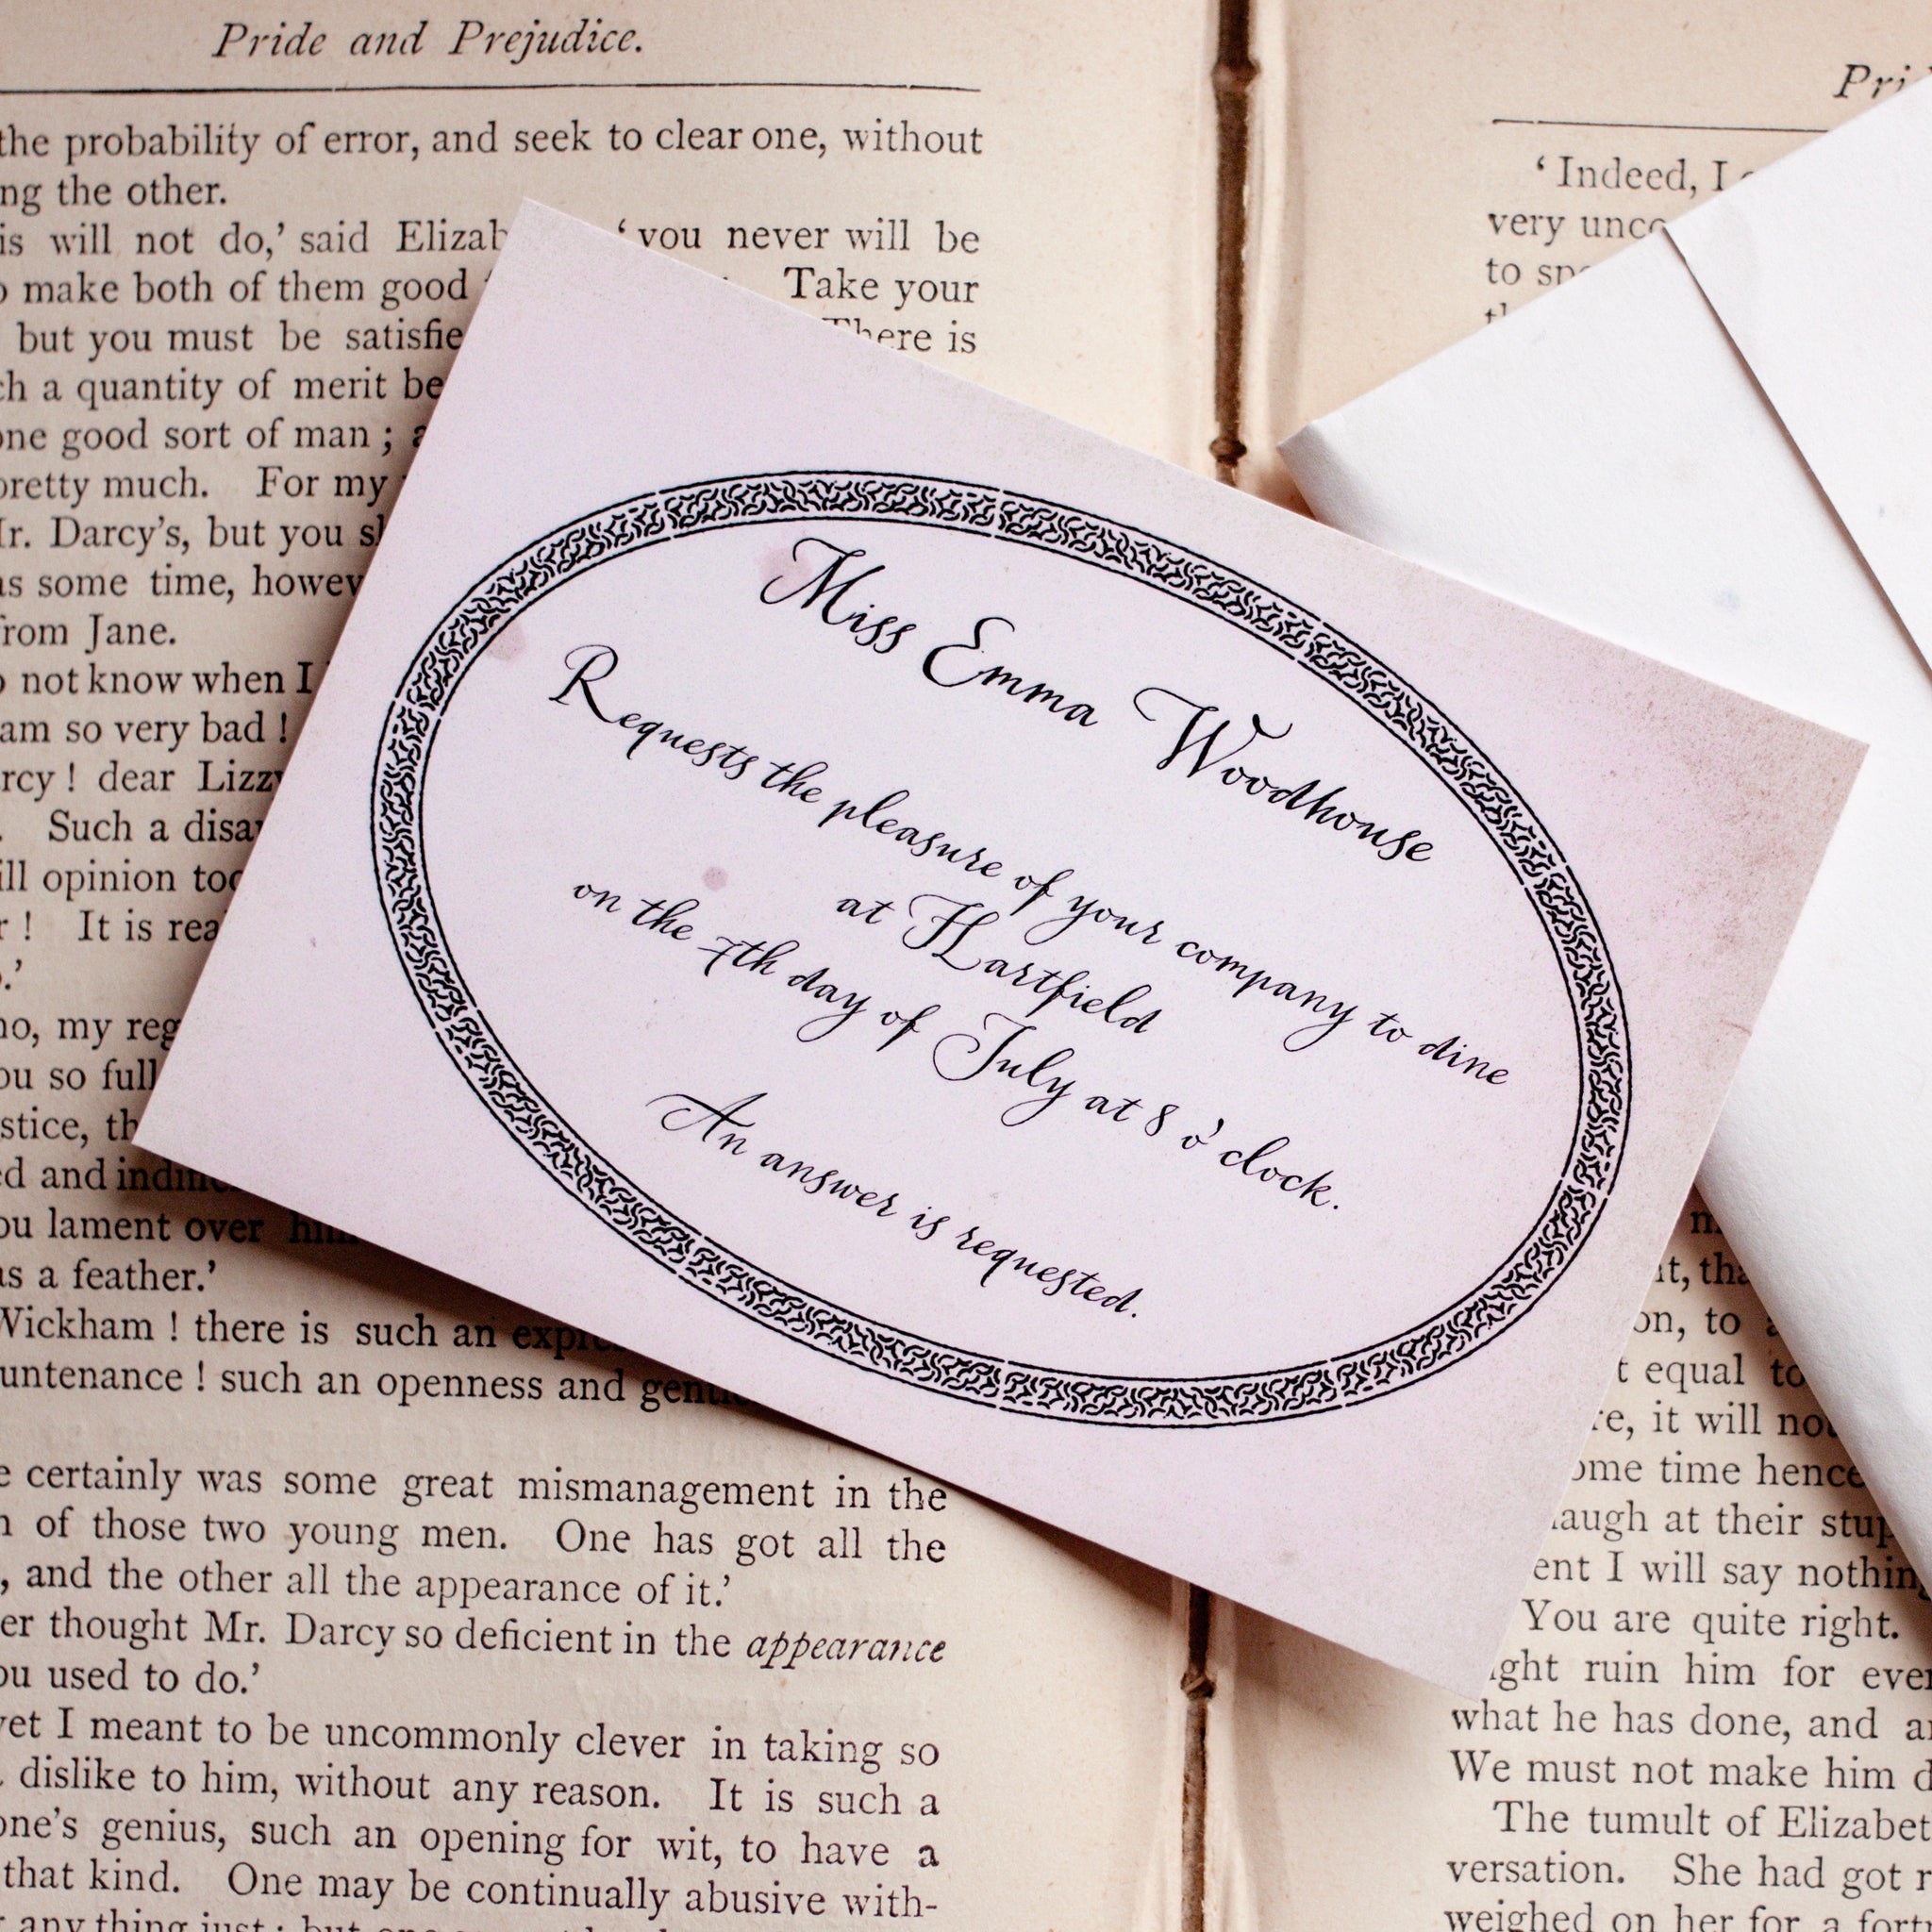 Pride and Prejudice.
the probability of error, and seek to clear one, without
the other.
will not do,' said 'you never will be
make both of them good Take your
but you must be is
a quantity of merit
good sort of man ;
pretty much. For my
Darcy's, but you
some time,
from Jane.
not know when I
am so very bad !
! dear
Such a
opinion
! It is

no, my
so full

and
lament over
as a feather.'
Wickham ! there is such an
! such an openness and
certainly was some great mismanagement in the
of those two young men. One has got all the
, and the other all the appearance of it.'
thought Mr. Darcy so deficient in the appearance
used to do.'
yet I meant to be uncommonly clever in taking so
dislike to him, without any reason. It is such a
one's genius, such an opening for wit, to have a
that kind. One may be continually abusive with-
Miss Emma Woodhouse
Requests the pleasure of your company to dine
at Hartfield
on the 7th day of July at 8 o'clock.
An answer is requested.
'Indeed, I
very
to
on, to
equal to
it will
time hence
laugh at their
I will say
You are quite right.
ruin him for
what he has done, and
We must not make him
The tumult of
versation. She had got
weighed on her for a